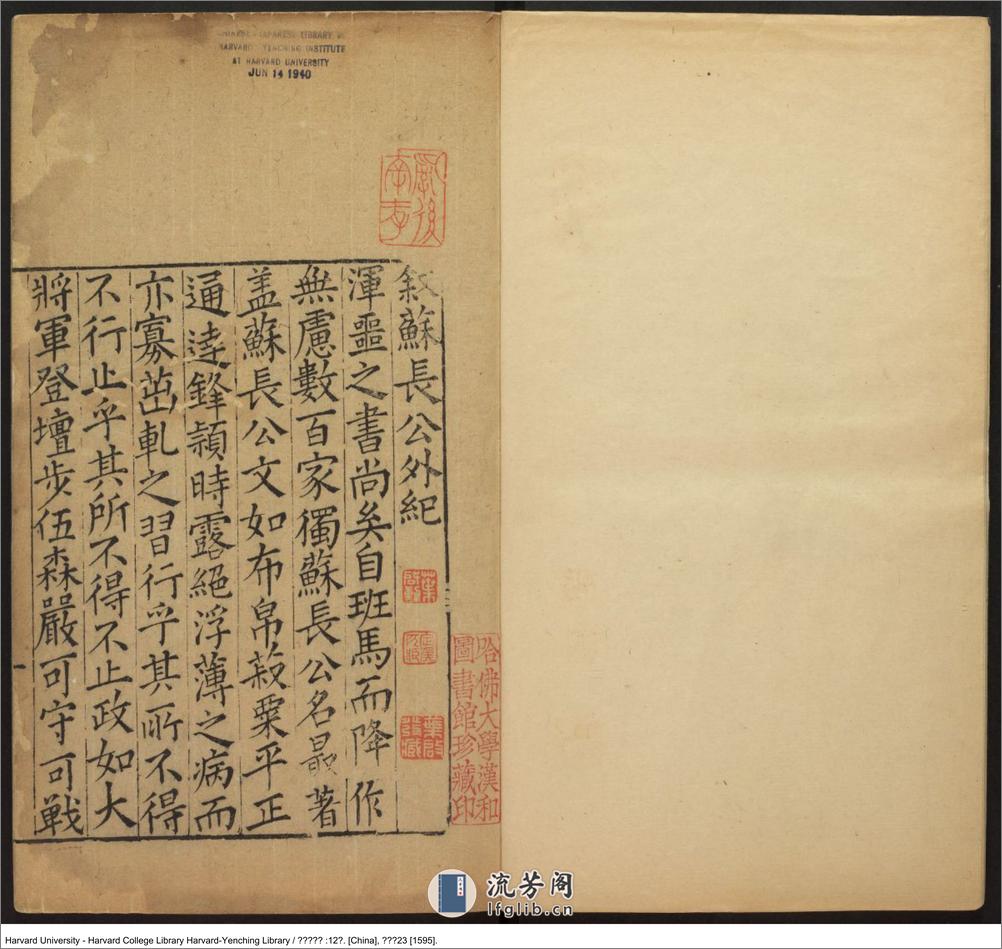 CHINESE-JAPANESE LIBRARY
HARVARD-YENCHING INSTITUTE
AT HARVARD UNIVERSITY
JUN 14 1940
叙蘇長公外紀
渾噩之書尚矣自班馬而降作
無慮數百家獨蘇長公名最著
盖蘇長公文如布帛菽粟平正
通逹鋒頴時露絕浮薄之病而
亦寡茁軋之習行乎其所不得
不行止乎其所不得不止政如大
將軍登壇步伍森嚴可守可戦
哈佛大學漢和
圖書館珍藏印
流芳阁
lfglib.cn
Harvard University - Harvard College Library Harvard-Yenching Library / ????? :12?. [China], ???23 [1595].